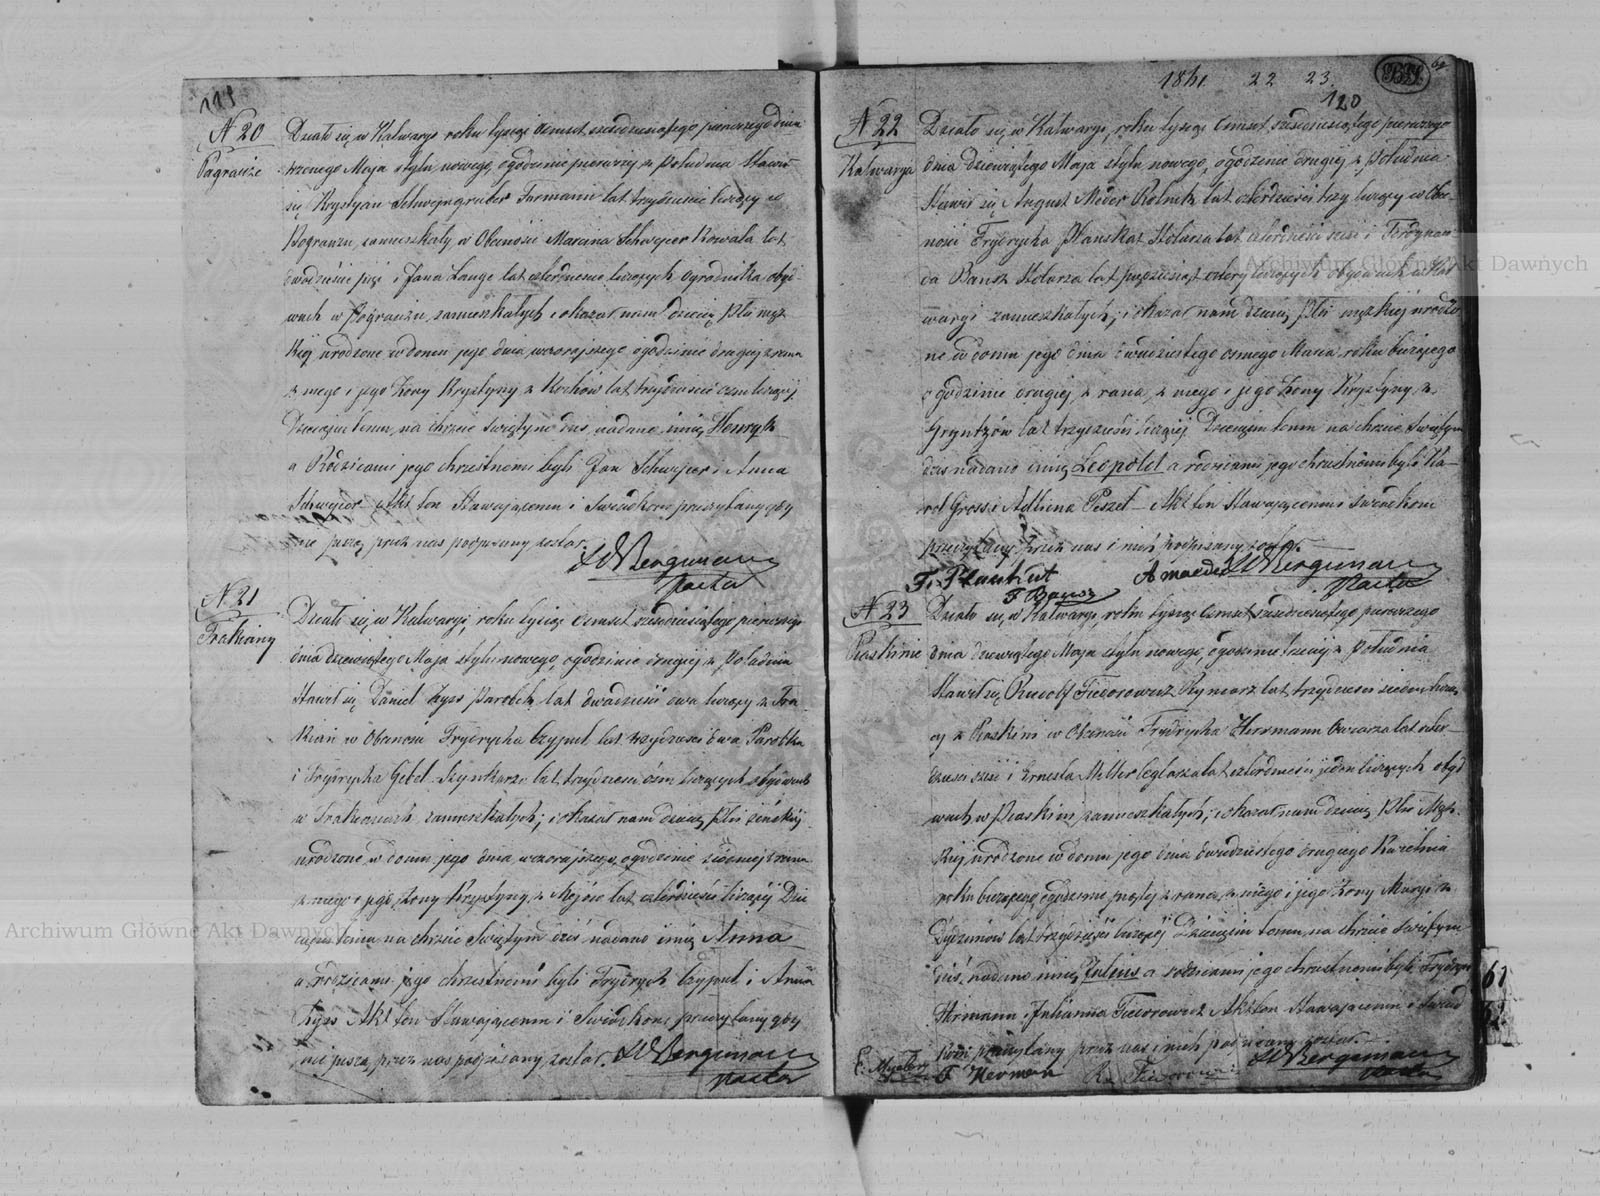 119
N 20
Pograuże
Działo się w Kalwaryi roku tysiąc ośmset sześćdziesiątego pierwszego dnia
trzeciego Maja stylu nowego, o godzinie pierwszej z Południa Stawił
się Krystyan Schweingruber Formann lat trzydzieści liczący w
Pograużu, zamieszkały w Obecności Marcina Schweicer Kowala lat
dwadzieścia pięć i Jana Lange lat czterdzieście liczących Ogrodnika obyd-
wuch w Pograużu zamieszkałych i okazał nam dziecię Płci męz
kiej urodzone w domu jego dnia wczorajszego o godzinie drugiej z rana
z niego i jego Żony Krystyny z Kochów lat trzydzieści ośm liczącej
Dziecięciu temu, na chrzcie Świętym dziś, nadano imię Henryk
a Rodzicami jego chrzestnemi byli Jan Schwejcer i Anna
Schwejcer Akt ten Stawającemu i Świadkom przeczytany gdy
nie piszą przez nas podpisany został.
Bergmann
Pastor
N 21
Trakiany
Działo się w Kalwaryi, roku tysiąc ośmset sześćdziesiątego pierwszego
dnia dziewiątego Maja stylu nowego, o godzinie drugiej z Południa
Stawił się Daniel Zyss Parobek lat dwadzieścia dwa liczący z Tra
kian w Obecności Frydrycha Czypul lat trzydzieści dwa Parobka
i Frydrycha Gebel Szynkarza lat trzydzieści ośm liczących obydwuch
w Trakianach zamieszkałych; i okazał nam dziecię Płci żeńskiej
urodzone, w domu jego dnia wczorajszego, o godzinie siódmej z rana
z niego i jego Żony Krystyny z Mejów lat czterdzieści liczącej Dzie
cięciu temu na chrzcie Świętym dziś nadano imię Anna
a rodzicami jego chrzestnemi byli Frydrych Czypul i Anna
Zyss Akt ten Stawającemu i Świadkom przeczytany gdy
nie piszą, przez nas podpisany został. Bergmann
Pastor
1861. 22 23.
120
N 22
Kalwarya
Działo się w Kalwaryi, roku tysiąc ośmset sześćdziesiątego pierwszego
dnia dziewiątego Maja stylu nowego, o godzinie drugiej z Południa
Stawił się August Meder Rolnik lat czterdzieści trzy liczący w Obec
ności Frydrycha Planskat Stolarza lat czterdzieści sześć i Ferdynan
da Bansz Stolarza lat pięćdziesiąt cztery liczących obydwuch w Kal
waryi zamieszkałych; i okazał nam dziecię Płci męzkiej urodzo
ne w domu jego dnia dwudziestego ósmego Marca roku bieżącego
o godzinie drugiej z rana, z niego i jego Żony Krystyny z
Gryntzów lat trzydzieści liczącej Dziecięciu temu na chrzcie Świętym
dziś nadano imię Leopold a rodzicami jego chrzestnemi byli Ka-
rol Gross i Adlina Peszel - Akt ten Stawającemu i Świadkom
przeczytany przez nas i nich podpisany został.
F. Planskat A maeder Bergmann
F Bansz Pastor
N 23
Piaskinie
Działo się w Kalwaryi, roku tysiąc ośmset sześćdziesiątego pierwszego
dnia dziewiątego Maja stylu nowego, o godzinie trzeciej z Południa
Stawił się Rudolf Fiedorowicz Rymarz lat trzydzieści siedem liczą
cy z Piaskini w Obecności Frydrycha Herrmann Owczarza lat czter-
dzieści sześć i Ernesta Miller Ceglarza lat czterdzieści jeden liczących obyd
wuch w Piaskini zamieszkałych; i okazał nam dziecię Płci Męz-
kiej urodzone w domu jego dnia dwudziestego drugiego Kwietnia
roku bieżącego o godzinie piątej z rana, z niego i jego Żony Maryi z
lat trzydzieści liczącej Dziecięciu temu, na chrzcie Świętym
dziś, nadano imię Juliusz a rodzicami jego chrzestnemi byli Frydrych
Hermann i Julianna Fiedorowicz Akt ten Stawającemu i Świad
kom przeczytany przez nas i nich podpisany został.
E. Myler F Herman R. Fiedorowicz Bergmann
Pastor
Archiwum Główne Akt Dawnych
Archiwum Główne Akt Dawnych